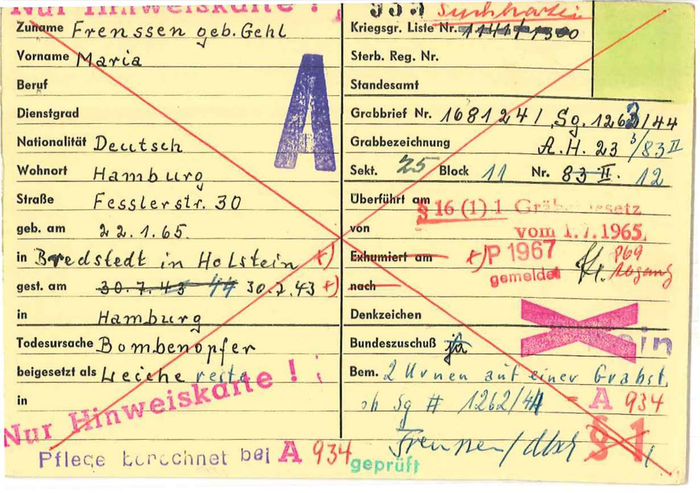 Nur Hinweiskarte !
Zuname Frenssen geb. Gehl
Vorname Maria
Beruf
Dienstgrad
Nationalität Deutsch
Wohnort Hamburg
Straße Fesslerstr. 30
geb. am 22.1.65.
in Bredstedt in Holstein +)
gest. am 30.7.43 44 30.7.43 +)
in Hamburg
Todesursache Bombenopfer
beigesetzt als Leiche reste
in
Nur Hinweiskarte !
Pflege berechnet bei A 934
geprüft
A
934 Suchkartei
Kriegsgr. Liste Nr. 1141/1300
Sterb. Reg. Nr.
Standesamt
Grabbrief Nr. 1681241 Sg. 1263/44
Grabbezeichnung A.H. 23 3/83 II
Sekt. 25 Block 11 Nr. 83 II. 12
Überführt am
§ 16 (1) 1 Gräbergesetz
von vom 1.7.1965
Exhumiert am +) P 1967 P69
nach gemeldet Abgang
Denkzeichen
Bundeszuschuß ja ein
Bem. 2 Urnen auf einer Grabst.
ob Sg # 1262/44 = A 934
Frenssen /
§ 1